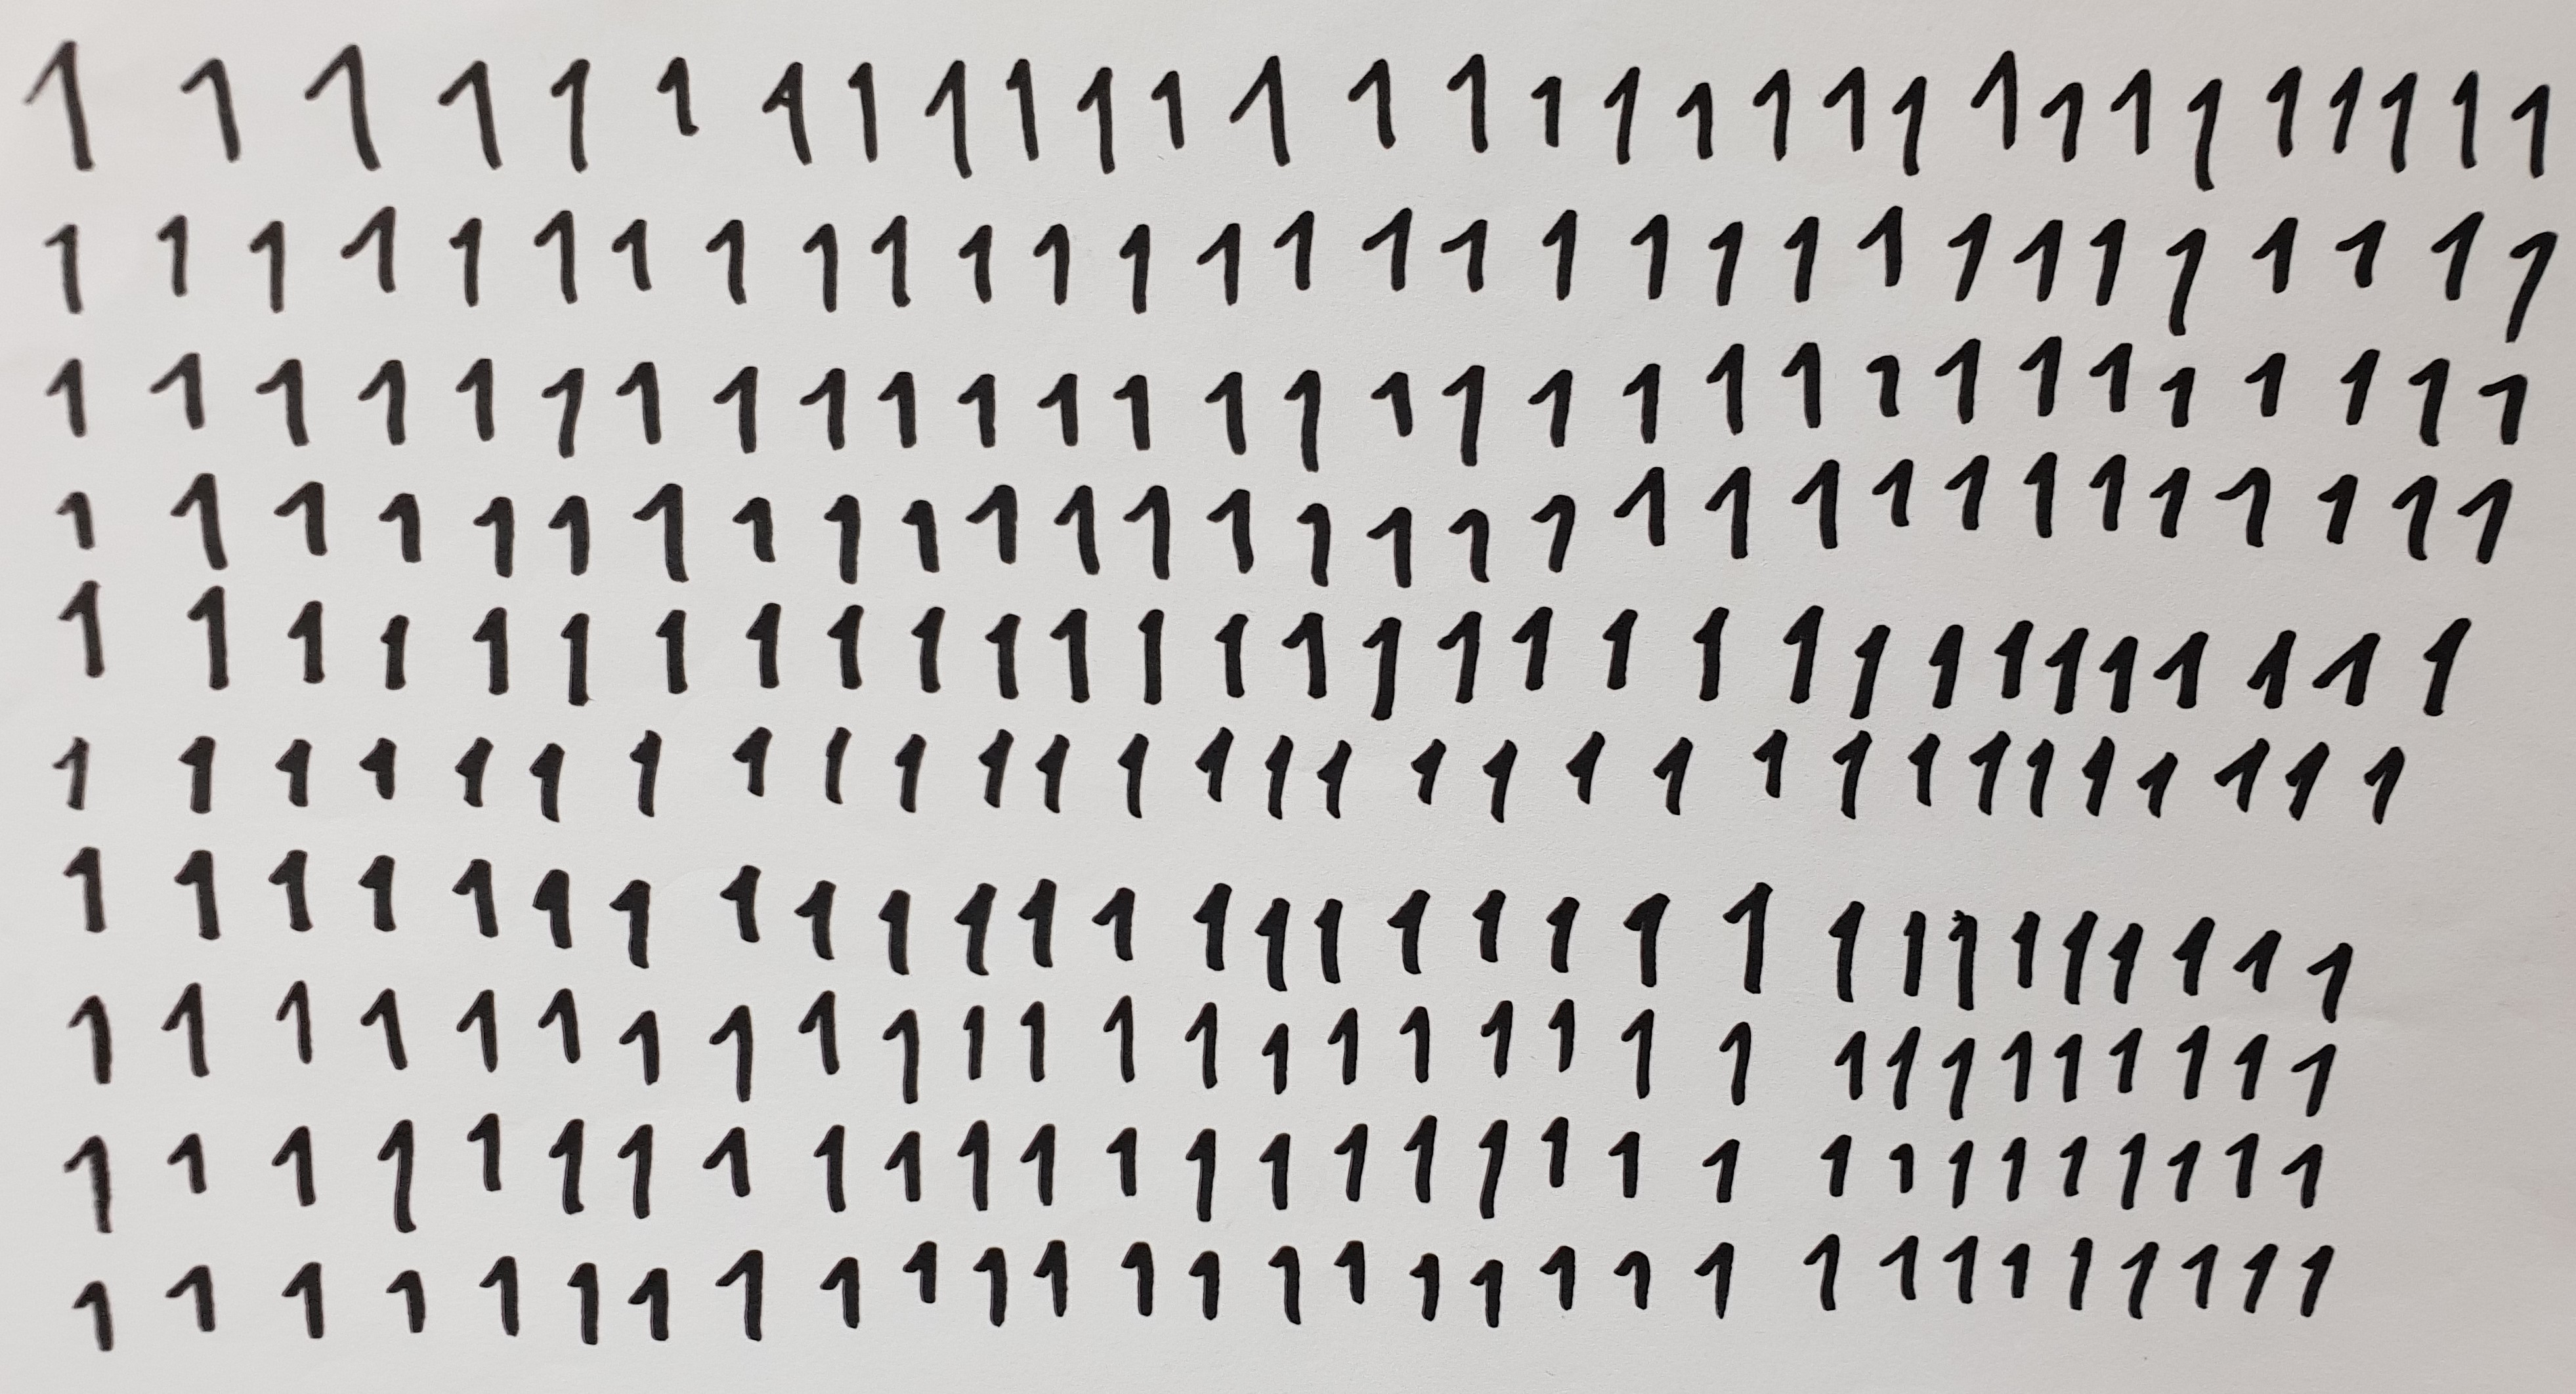 1 1 1 1 1 1 1 1 1 1 1 1 1 1 1 1 1 1 1 1 1 1 1 1 1 1 1 1 1 1
1 1 1 1 1 1 1 1 1 1 1 1 1 1 1 1 1 1 1 1 1 1 1 1 1 1 1 1 1 1
1 1 1 1 1 1 1 1 1 1 1 1 1 1 1 1 1 1 1 1 1 1 1 1 1 1 1 1 1 1
1 1 1 1 1 1 1 1 1 1 1 1 1 1 1 1 1 1 1 1 1 1 1 1 1 1 1 1 1 1
1 1 1 1 1 1 1 1 1 1 1 1 1 1 1 1 1 1 1 1 1 1 1 1 1 1 1 1 1 1
1 1 1 1 1 1 1 1 1 1 1 1 1 1 1 1 1 1 1 1 1 1 1 1 1 1 1 1 1 1
1 1 1 1 1 1 1 1 1 1 1 1 1 1 1 1 1 1 1 1 1 1 1 1 1 1 1 1 1 1
1 1 1 1 1 1 1 1 1 1 1 1 1 1 1 1 1 1 1 1 1 1 1 1 1 1 1 1 1 1
1 1 1 1 1 1 1 1 1 1 1 1 1 1 1 1 1 1 1 1 1 1 1 1 1 1 1 1 1 1
1 1 1 1 1 1 1 1 1 1 1 1 1 1 1 1 1 1 1 1 1 1 1 1 1 1 1 1 1 1